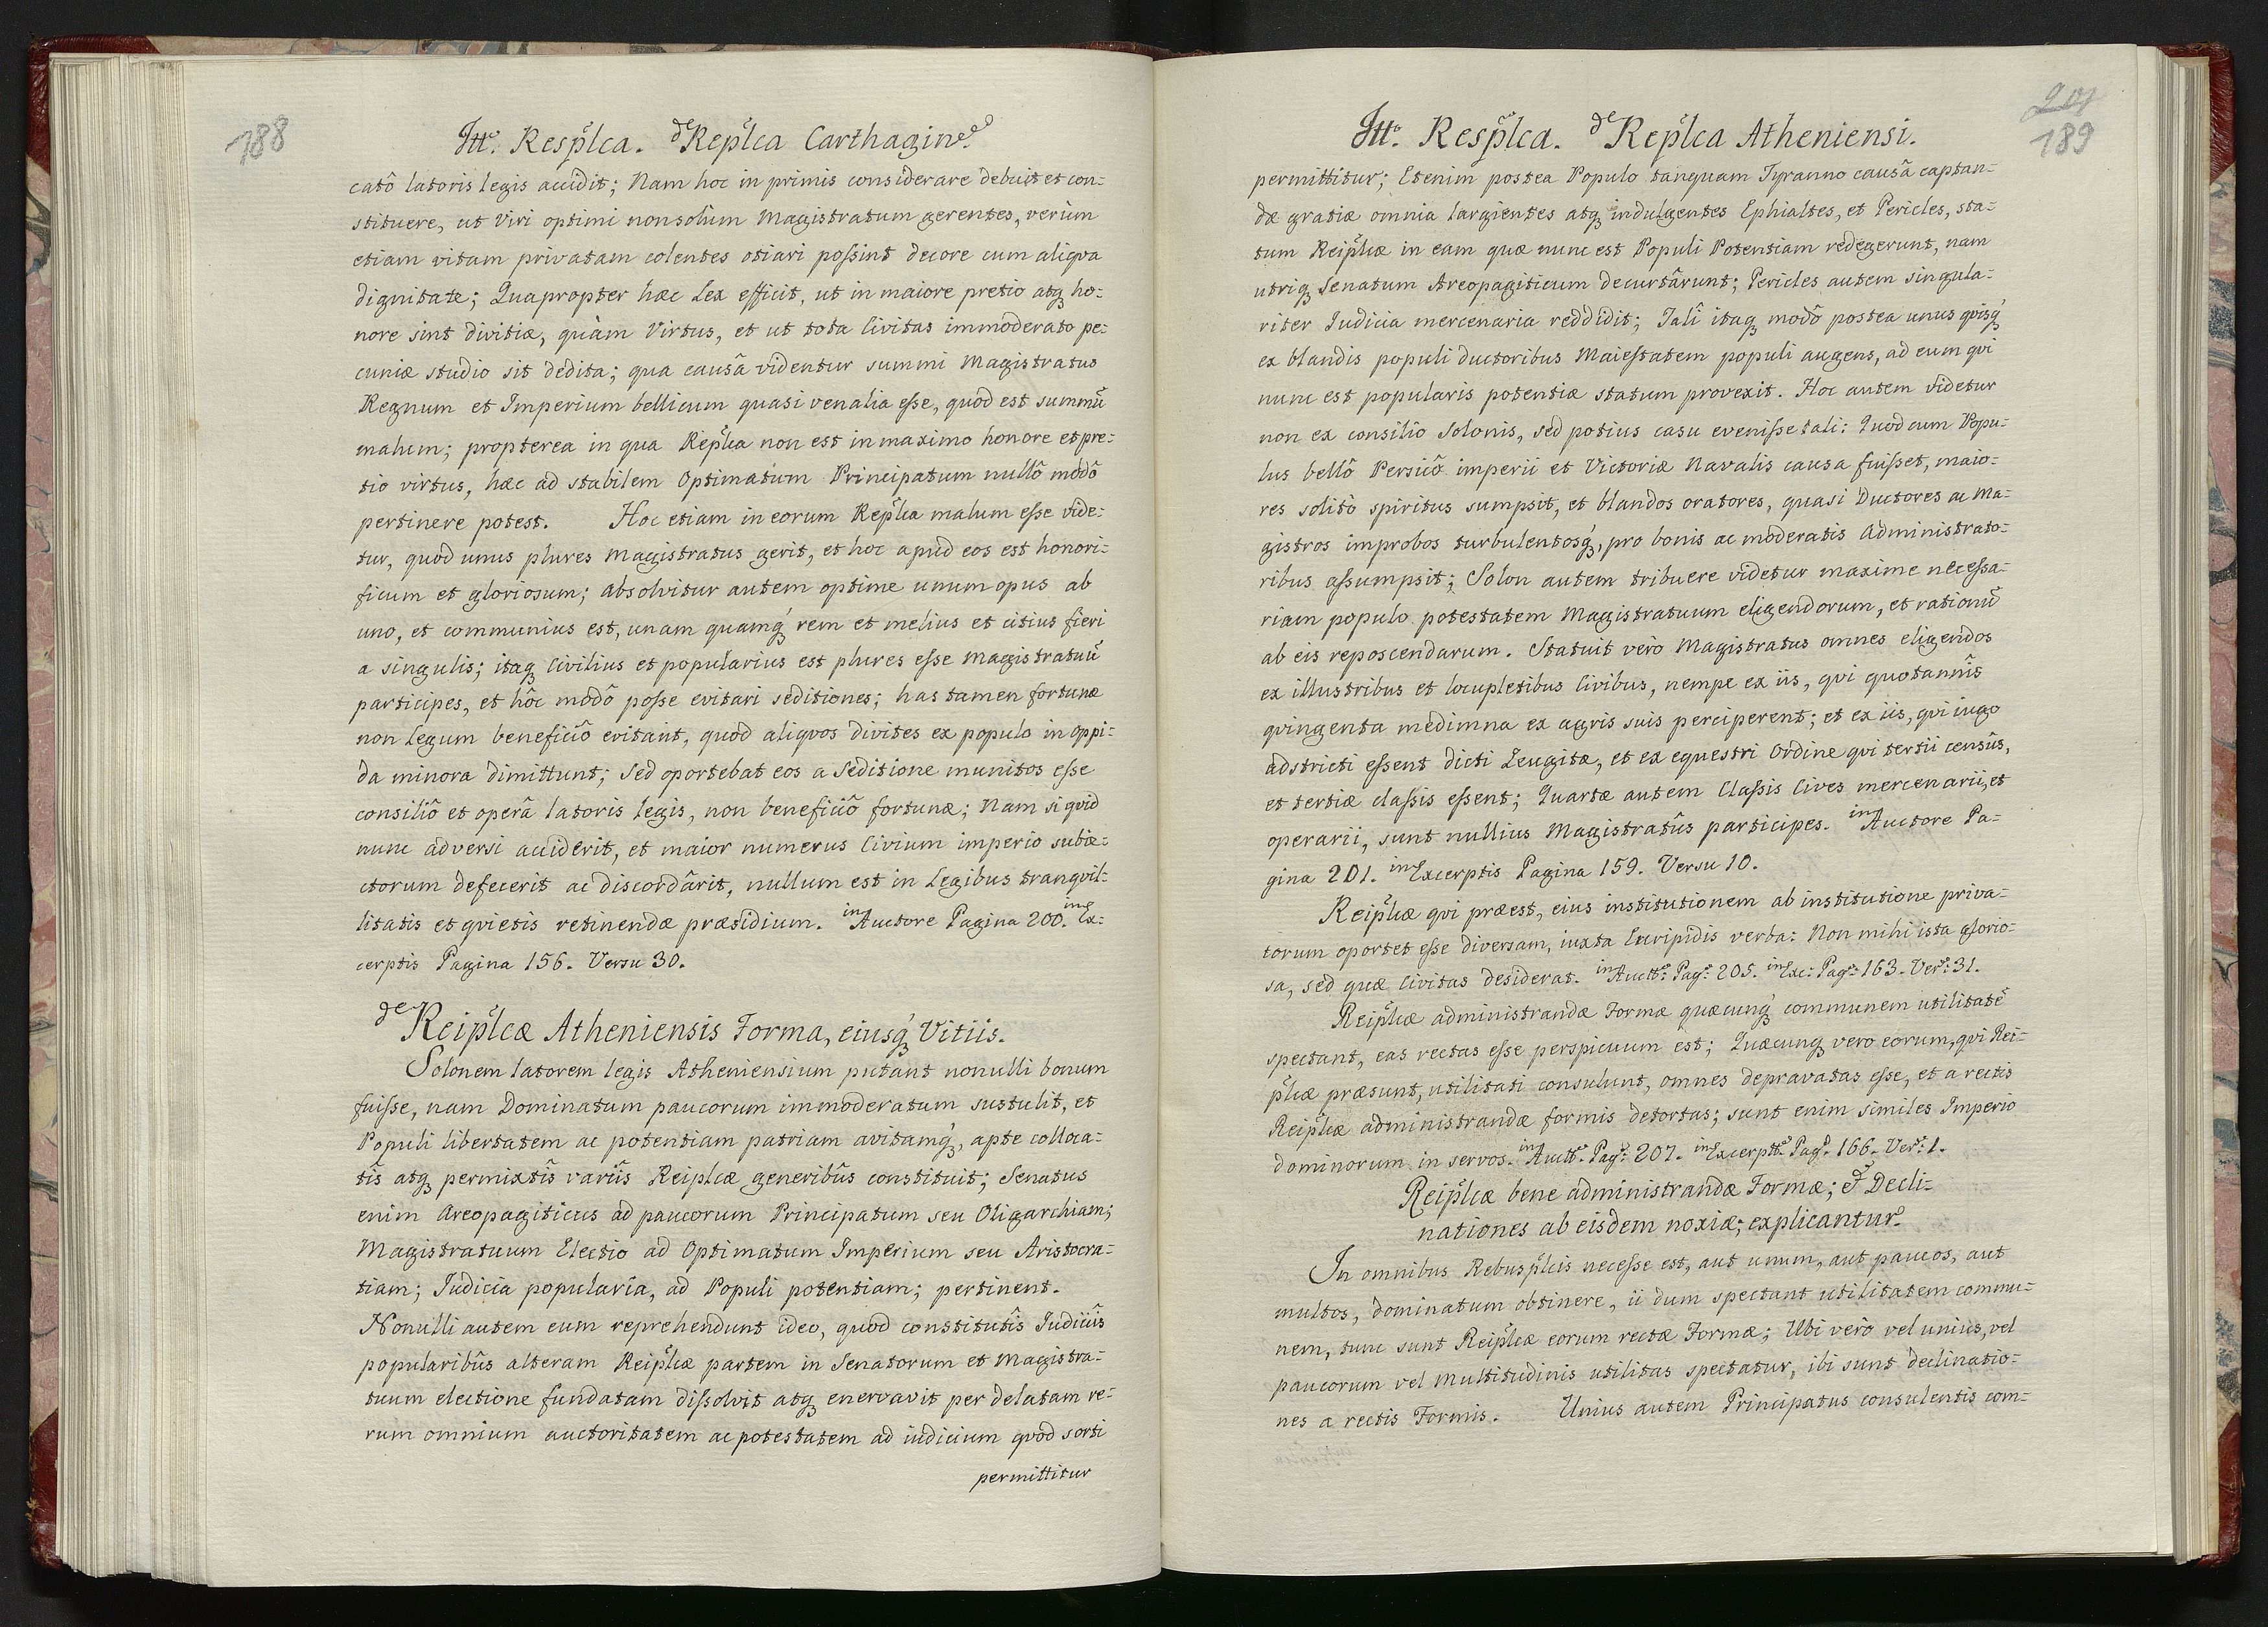 188
Ittr. Resplca. de Replca Carthagin.
catô latoris legis accidit; Nam hoc in primis considerare debuit et con-
stituere, ut Viri optimi non solùm Magistratum gerentes, verùm
etiam vitam privatam colentes otiari poſsint decore cum aliqva
dignitate; Quapropter hæc Lex efficit, ut in maiore pretio atq ho-
nore sint divitiæ, quàm Virtus, et ut tota Civitas immoderato pe-
cuniæ studio sit dedita; qua causâ videntur summi Magistratus
Regnum et Imperium bellicum quasi venalia eſse, quod est summū
malum; propterea in qua Replca non est in maximo honore et pre-
tio virtus, hæc ad stabilem Optimatum Principatum nullô modô
pertinere potest. Hoc etiam in eorum Replca malum eſse vide-
tur, quod unus plures Magistratus gerit, et hoc apud eos est honori-
ficum et gloriosum; absolvitur autem optime unum opus ab
uno, et communius est, unam quamq́ rem et melius et citius fieri
a singulis; itaq Civilius et popularius est plures eſse Magistratuū
participes, et hôc modô poſse evitari seditiones; has tamen fortunæ
non Legum beneficiô evitant, quod aliqvos divites ex populo in oppi-
da minora dimittunt; Sed oportebat eos a Seditione munitos eſse
consiliô et operâ latoris legis, non beneficiô fortunæ; Nam si qvid
nunc adversi acciderit, et maior numerus Civium imperio subie-
ctorum defecerit ac discordârit, nullum est in Legibus tranqvil-
litatis et qvietis retinendæ præsidium. in Auctore Pagina 200. in Ex-
cerptis Pagina 156. Versu 30.
de Reiplcæ Atheniensis Forma, eiusq́ Vitiis.
Solonem latorem legis Atheniensium putant nonulli bonum
fuiſse, nam Dominatum paucorum immoderatum sustulit, et
Populi libertatem ac potentiam patriam avitamq́, apte colloca-
tîs atq permixtîs variîs Reiplcæ generibûs constituit; Senatus
enim Areopagiticus ad paucorum Principatum seu Oligarchiam;
Magistratuum Electio ad Optimatum Imperium seu Aristocra-
tiam; Iudicia popularia, ad Populi potentiam; pertinent.
Nonulli autem eum reprehendunt ideo, quod constitutîs Iudiciîs
popularibûs alteram Reiplcæ partem in Senatorum et Magistra-
tuum electione fundatam diſsolvit atq enervavit per delatam re-
rum omnium auctoritatem ac potestatem ad iudicium qvod sorti
permittitur
201
189
Ittr. Resplca. de Replca Atheniensi.
permittitur; Etenim postea Populo tanquam Tyranno causâ captan-
dæ gratiæ omnia largientes atq indulgentes Ephialtes, et Pericles, sta-
tum Reiplcæ in eam quæ nunc est Populi Potentiam redegerunt, nam
utriq Senatum Areopagiticum decurtârunt; Pericles autem singula-
riter Iudicia mercenaria reddidit; Talî itaq modô postea unus qvisq́
ex blandis populi ductoribus Maiestatem populi augens, ad eum qvi
nunc est popularis potentiæ statum provexit. Hoc autem videtur
non ex consilio Solonis, sed potius casu eveniſse tali: Quod cum Popu-
lus bellô Persicô imperii et Victoriæ Navalis causa fuiſset, maio-
res solitò spiritus sumpsit, et blandos oratores, quasi Ductores ac Ma-
gistros improbos turbulentosq́, pro bonis ac moderatis Administrato-
ribus aſsumpsit; Solon autem tribuere videtur maxime neceſsa-
riam populo potestatem Magistratuum eligendorum, et rationū
ab eis reposcendarum. Statuit verò Magistratus omnes eligendos
ex illustribus et locupletibus Civibus, nempe ex iis, qvi quotannîs
qvingenta medimna ex agris suis perciperent; et ex iis, qvi iugo
adstricti eſsent dicti Zeugitæ, et ex equestri Ordine qvi tertii censûs,
et tertiæ claſsis eſsent; Quartæ autem Claſsis Cives mercenarii, et
operarii, sunt nullius Magistratûs participes. in Auctore Pa-
gina 201. in Excerptis Pagina 159. Versu 10.
Reiplcæ qvi præest, eius institutionem ab institutione priva-
torum oportet eſse diversam, iuxta Euripidis verba: Non mihi ista glorio-
sa, sed quæ Civitas desiderat. in Auctre Pag: 205. in Exc: Pag: 163. Ver: 31.
Reiplcæ administrandæ Formæ quæcunq́ communem utilitatē
spectant, eas rectas eſse perspicuum est; Quæcunq vero eorum, qvi Rei-
plcæ præsunt, utilitati consulunt, omnes depravatas eſse, et a rectis
Reiplcæ administrandæ formis detortas; sunt enim similes Imperio
dominorum in servos. in Auctre. Pag: 207. in Excerptis Pag. 166. Ver: 1.
Reiplcæ bene administrandæ Formæ; et Decli-
nationes ab eisdem noxiæ; explicantur.
In omnibus Rebusplcis neceſse est, aut unum, aut paucos, aut
multos, dominatum obtinere, ii dum spectant utilitatem commu-
nem, tunc sunt Reiplcæ eorum rectæ Formæ; Ubi verò vel unius, vel
paucorum vel multitudinis utilitas spectatur, ibi sunt declinatio-
nes a rectis Formis. Unius autem Principatus consulentis com-